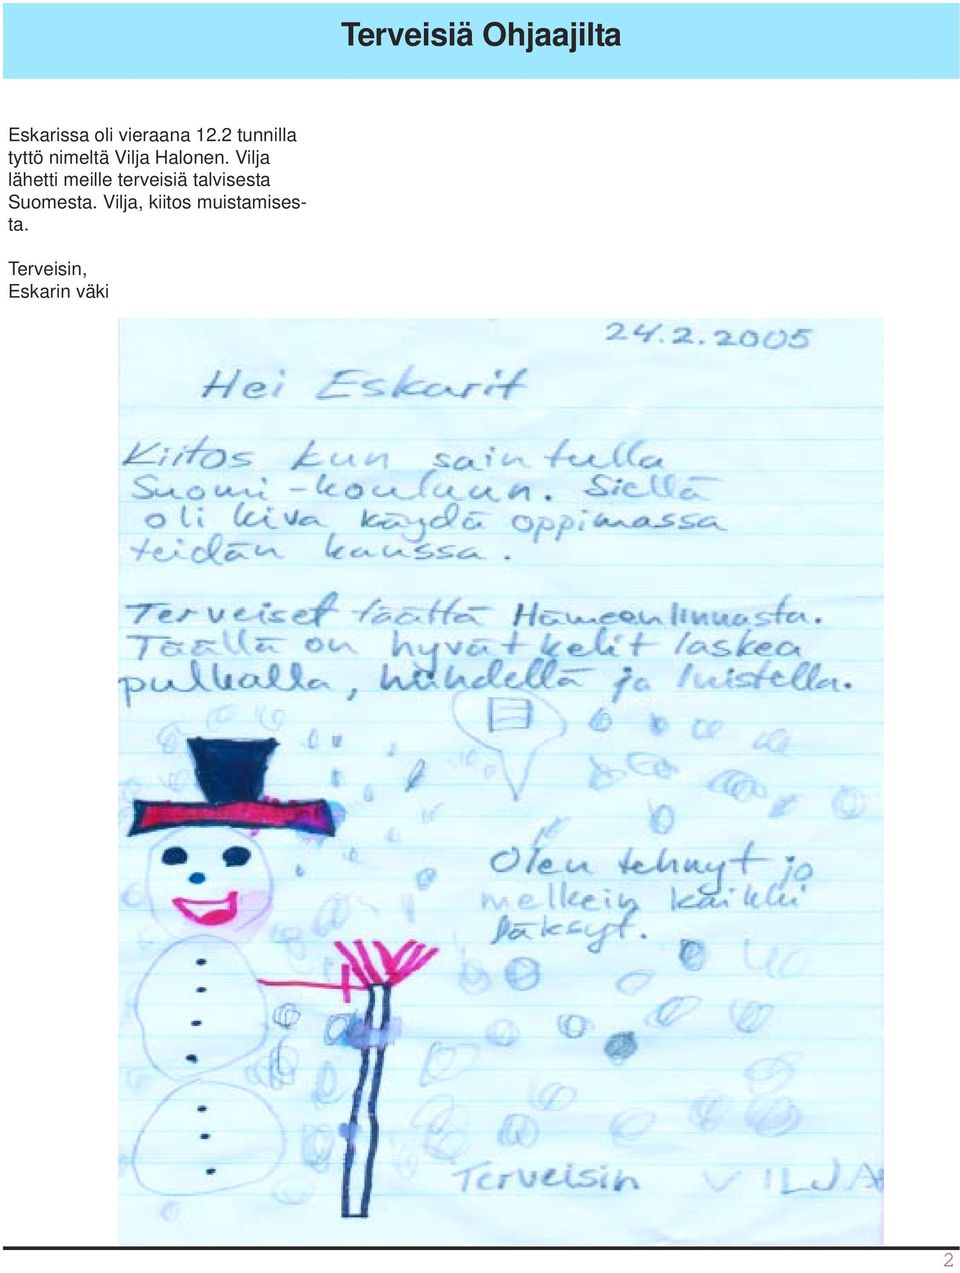 Terveisiä Ohjaajilta
Eskarissa oli vieraana 12.2 tunnilla
tyttö nimeltä Vilja Halonen. Vilja
lähetti meille terveisiä talvisesta
Suomesta. Vilja, kiitos muistamises-
ta.
Terveisin,
Eskarin väki
24.2.2005
Hei Eskarit
Kiitos kun sain tulla
Suomi-kouluun. Siellä
oli kiva käydä oppimassa
teidän kanssa.
Terveiset täältä Hämeenlinnasta.
Täällä on hyvät kelit laskea
pulkalla, hiihdellä ja luistella.
Olen tehnyt jo
melkein kaikki
läksyt.
Terveisin VILJA
2